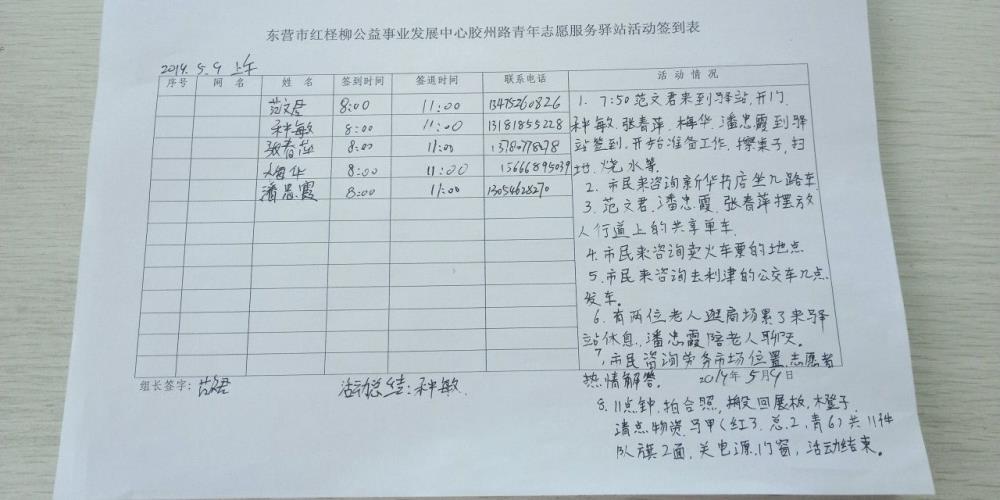 东营市红柽柳公益事业发展中心胶州路青年志愿服务驿站活动签到表
2019.5.9 上午
序号 网名 姓名 签到时间 签退时间 联系电话 活动情况
范文君 8:00 11:00 13475260826
种敏 8:00 11:00 13181855228
张春萍 8:00 11:00
梅华 8:00 11:00 15666895039
潘忠霞 8:00 11:00 13054628270
1. 7:50范文君来到驿站,开门.
种敏.张春萍.梅华.潘忠霞到驿
站签到.开始准备工作.擦桌子,扫
地.烧水等.
2. 市民来咨询新华书店坐几路车
3. 范文君.潘忠霞.张春萍摆放
人行道上的共享单车.
4.市民来咨询卖火车票的地点
5.市民来咨询去利津的公交车几点
发车。
6.有两位老人逛商场累了来驿
站休息.潘忠霞陪老人聊天。
7.市民咨询劳务市场位置.志愿者
热情解答。 2019年5月9日
8. 11点钟.拍合照,搬回展板,木凳子.
清点物资.马甲(红3.总.2,青6)共11件
队旗2面,关电源.门窗,活动结束。
组长签字: 范文君 活动总结:种敏